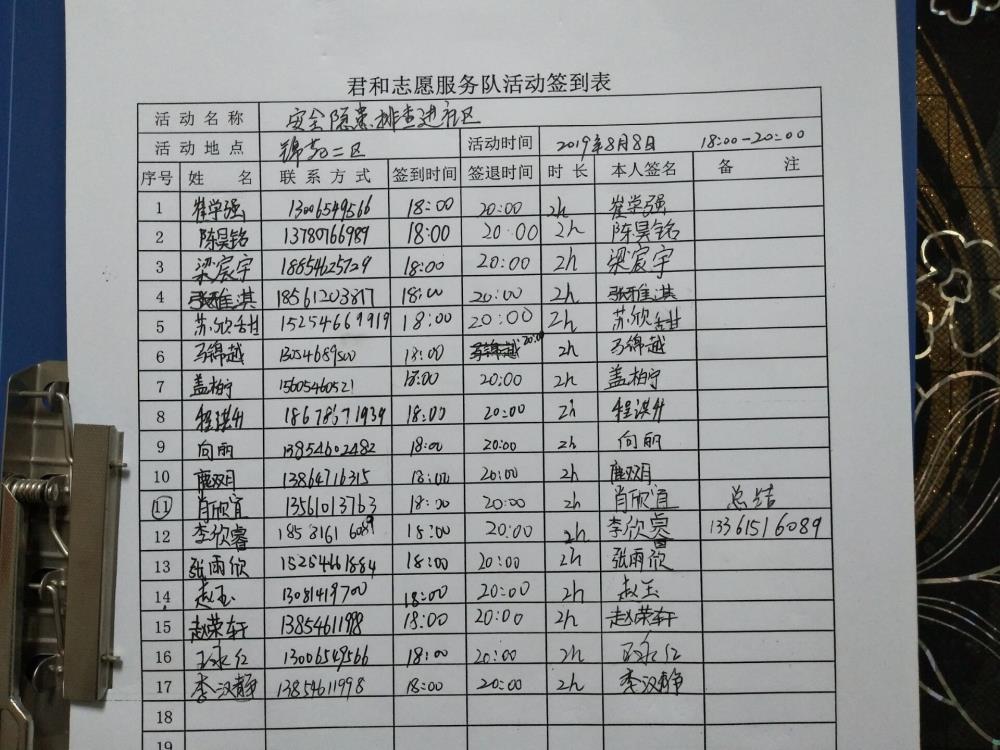 君和志愿服务队活动签到表
活动名称 安全隐患排查进社区
活动地点 锦苑二区 活动时间 2019年8月8日 18:00-20:00
序号 姓名 联系方式 签到时间 签退时间 时长 本人签名 备注
1 崔学强 13006549566 18:00 20:00 2h 崔学强
2 陈昊铭 13780766989 18:00 20:00 2h 陈昊铭
3 梁宸宇 18854625729 18:00 20:00 2h 梁宸宇
4 张雅淇 18561203817 18:00 20:00 2h 张雅淇
5 苏欣甜 15254669919 18:00 20:00 2h 苏欣甜
6 马锦越 13054689500 18:00 20:00 2h 马锦越
7 盖柏宁 15605460521 18:00 20:00 2h 盖柏宁
8 程洪升 18678671939 18:00 20:00 2h 程洪升
9 向丽 13854602482 18:00 20:00 2h 向丽
10 鹿双月 13864716315 18:00 20:00 2h 鹿双月
11 肖欣宜 13561013763 18:00 20:00 2h 肖欣宜 总结
12 李欣睿 18:00 20:00 2h 李欣睿 13361516089
13 张雨欣 15254661884 18:00 20:00 2h 张雨欣
14 赵玉 13081419700 18:00 20:00 2h 赵玉
15 赵荣轩 13854611998 18:00 20:00 2h 赵荣轩
16 王永红 13006549566 18:00 20:00 2h 王永红
17 李汶静 13854611998 18:00 20:00 2h 李汶静
18
19